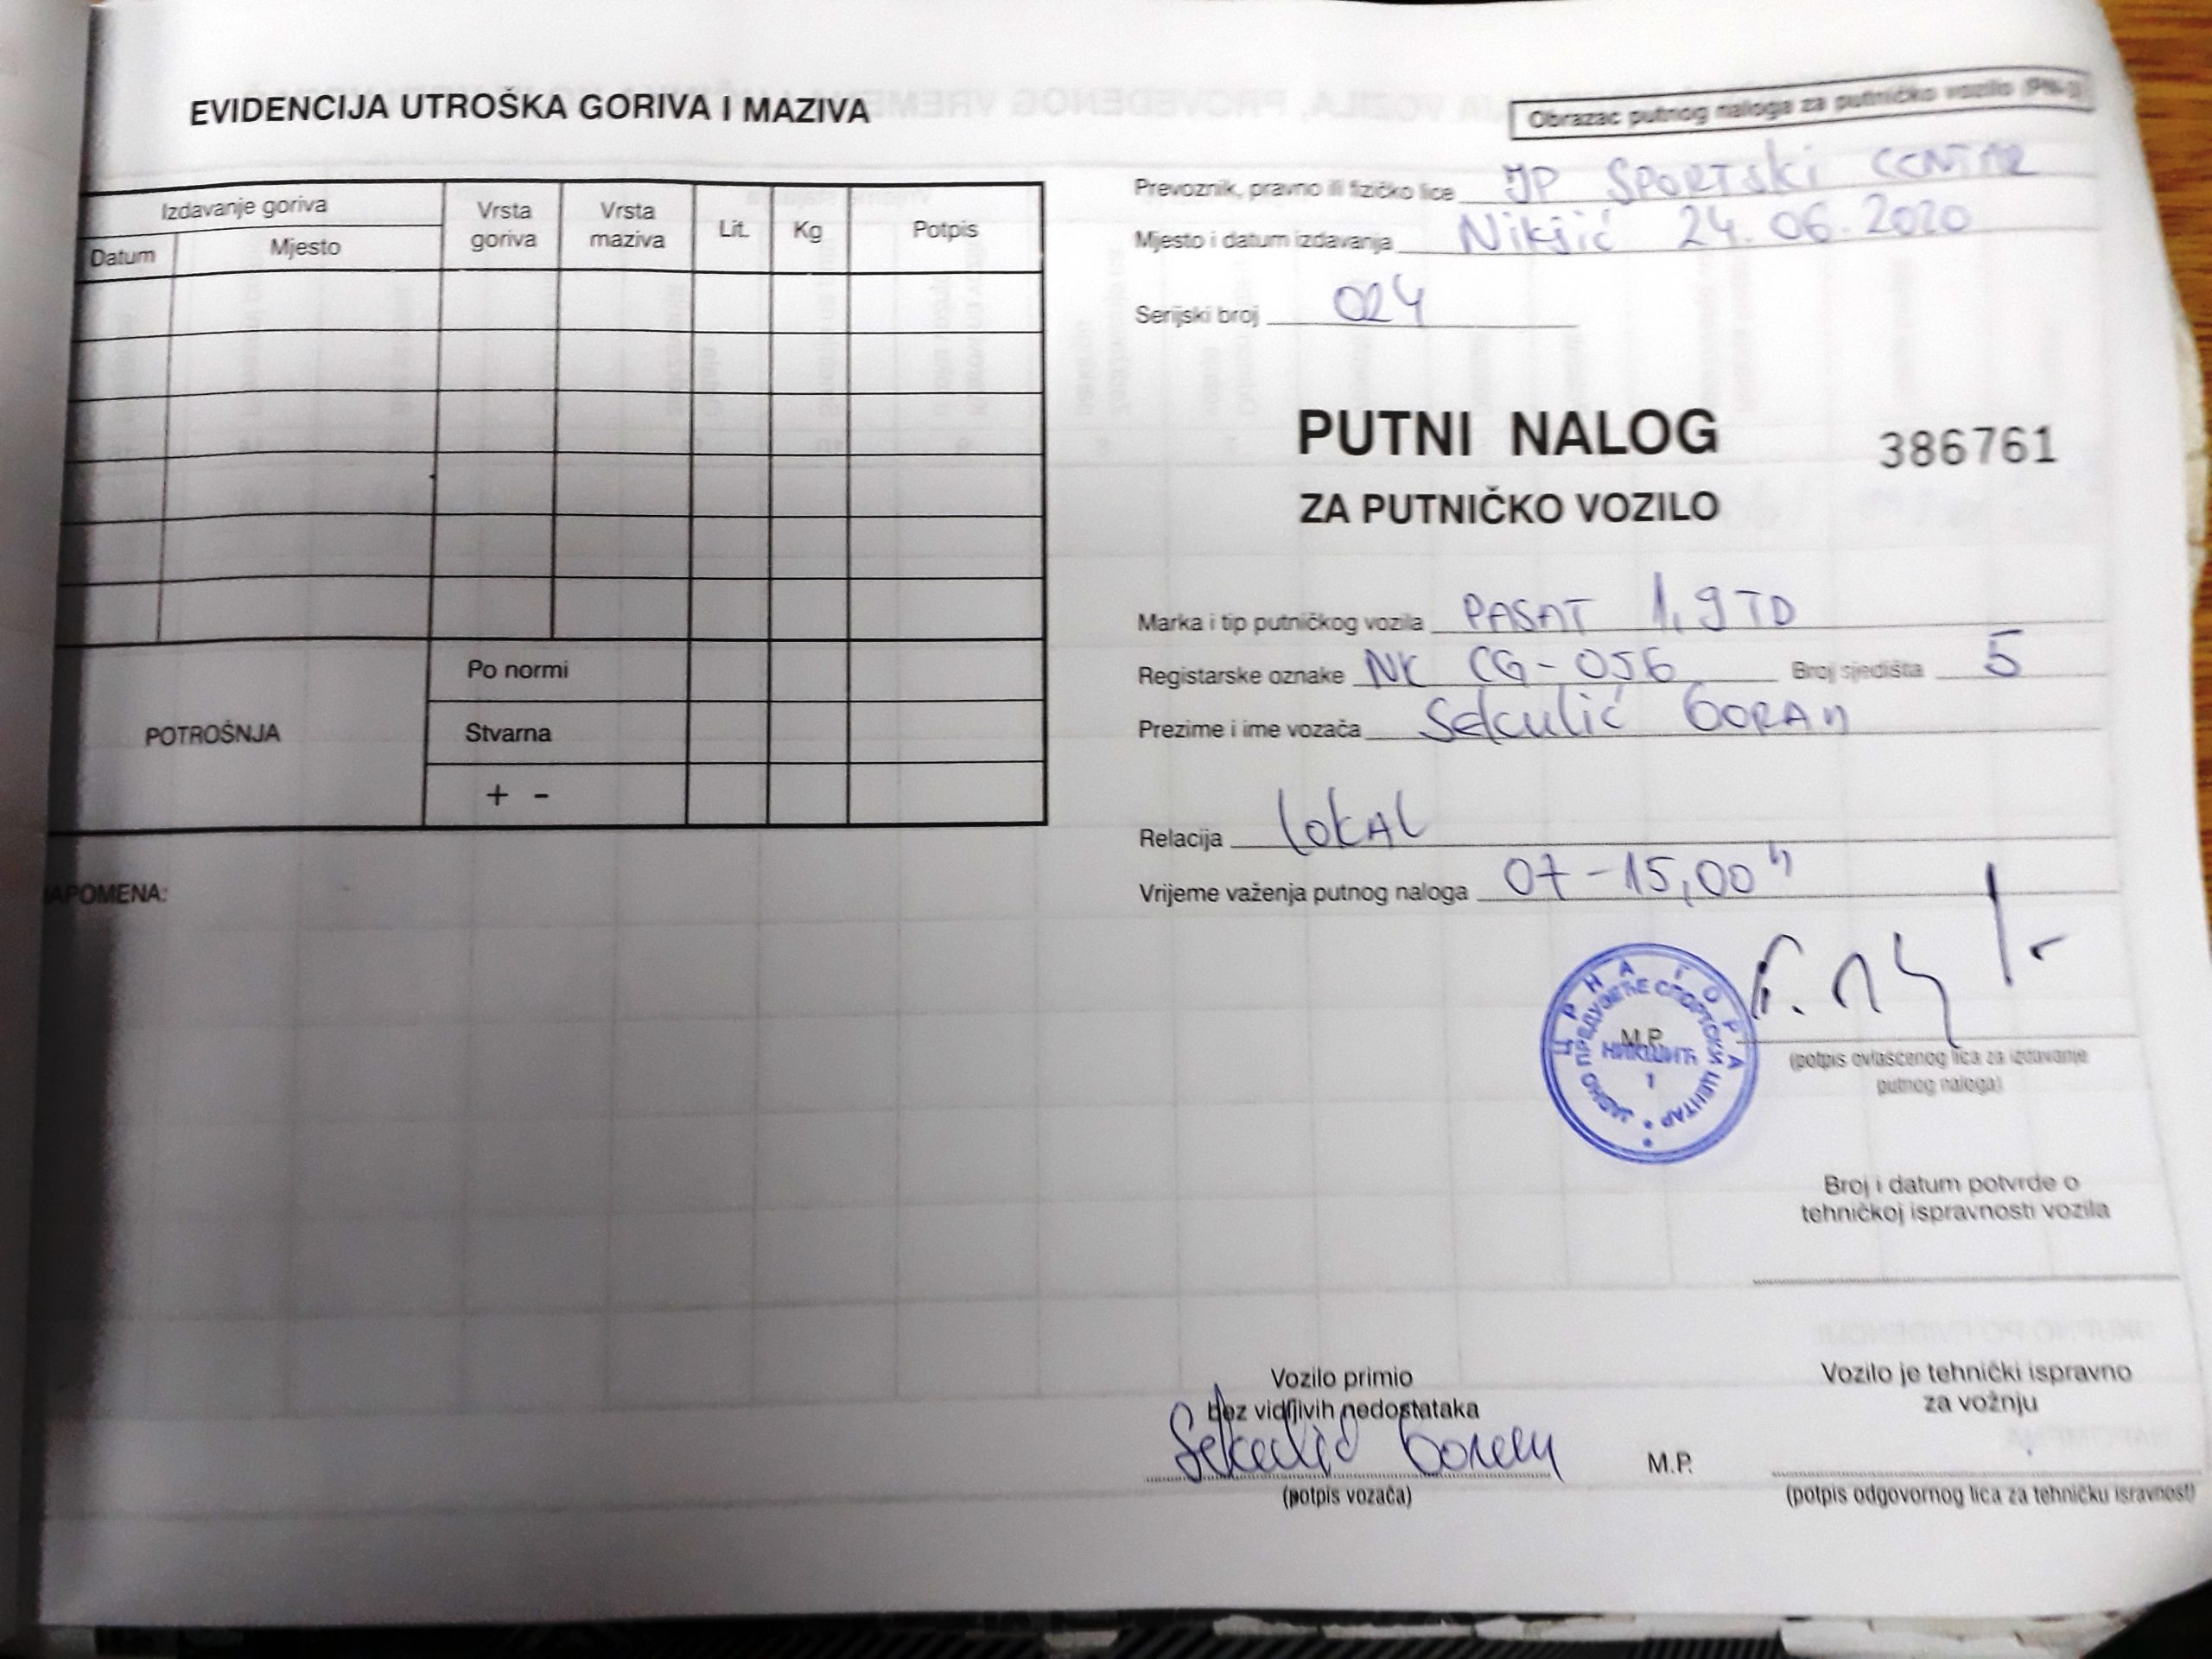 EVIDENCIJA UTROŠKA GORIVA I MAZIVA
Izdavanje goriva
Datum
Mjesto
Vrsta goriva
Vrsta maziva
Lit.
Kg
Potpis
POTROŠNJA
Po normi
Stvarna
+ -
APOMENA:
Obrazac putnog naloga za putničko vozilo (PN-)
Prevoznik, pravno ili fizičko lice JP SPORTSKI CENTAR
Mjesto i datum izdavanja Nikšić 24.06.2020
Serijski broj 024
PUTNI NALOG 386761
ZA PUTNIČKO VOZILO
Marka i tip putničkog vozila PASAT 1,9 TD
Registarske oznake NK CG-056 Broj sjedišta 5
Prezime i ime vozača Sekulić GORAN
Relacija LOKAL
Vrijeme važenja putnog naloga 07-15,00 h
ЦРНА ГОРА
ЈАВНО ПРЕДУЗЕЋЕ СПОРТСКИ ЦЕНТАР
M.P.
НИКШИЋ
1
(potpis ovlašćenog lica za izdavanje
putnog naloga)
Broj i datum potvrde o
tehničkoj ispravnosti vozila
Vozilo primio
bez vidljivih nedostataka
Sekulić Goran
(potpis vozača)
M.P.
Vozilo je tehnički ispravno
za vožnju
(potpis odgovornog lica za tehničku isravnost)